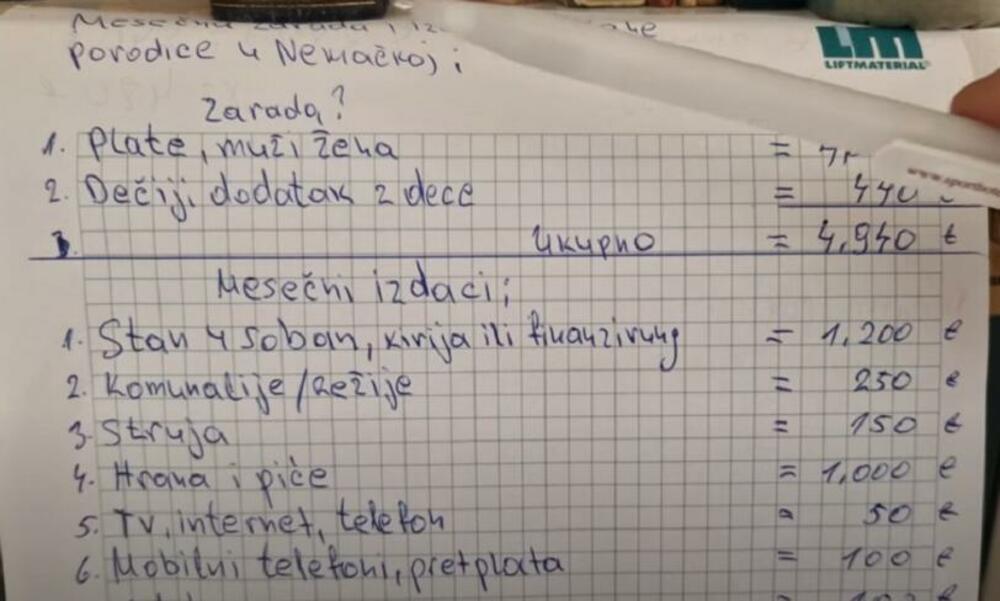 Mesečna zarada, iz
porodice u Nemačkoj;
LM
LIFTMATERIAL
Zarada?
1. Plate, muž i žena =
2. Dečiji dodatak 2 dece = 440
3. Ukupno = 4.940 €
Mesečni izdaci;
1. Stan 4 soban, kirija ili finanzirung = 1.200 €
2. Komunalije/Režije = 250 €
3. Struja = 150 €
4. Hrana i piće = 1.000 €
5. TV, internet, telefon = 50 €
6. Mobilni telefoni, pretplata = 100 €